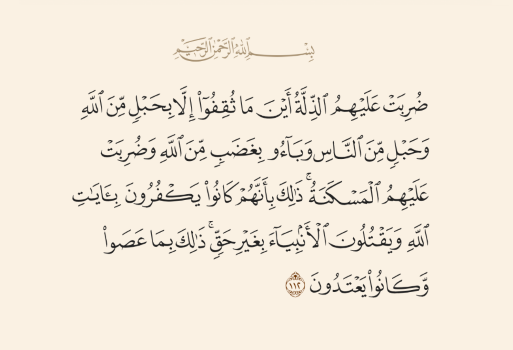 بِسْمِ اللَّهِ الرَّحْمَٰنِ الرَّحِيمِ
ضُرِبَتْ عَلَيْهِمُ ٱلذِّلَّةُ أَيْنَ مَا ثُقِفُوٓا۟ إِلَّا بِحَبْلٍ مِّنَ ٱللَّهِ
وَحَبْلٍ مِّنَ ٱلنَّاسِ وَبَآءُو بِغَضَبٍ مِّنَ ٱللَّهِ وَضُرِبَتْ
عَلَيْهِمُ ٱلْمَسْكَنَةُ ۚ ذَٰلِكَ بِأَنَّهُمْ كَانُوا۟ يَكْفُرُونَ بِـَٔايَـٰتِ
ٱللَّهِ وَيَقْتُلُونَ ٱلْأَنۢبِيَآءَ بِغَيْرِ حَقٍّ ۚ ذَٰلِكَ بِمَا عَصَوا۟
وَّكَانُوا۟ يَعْتَدُونَ ١١٢